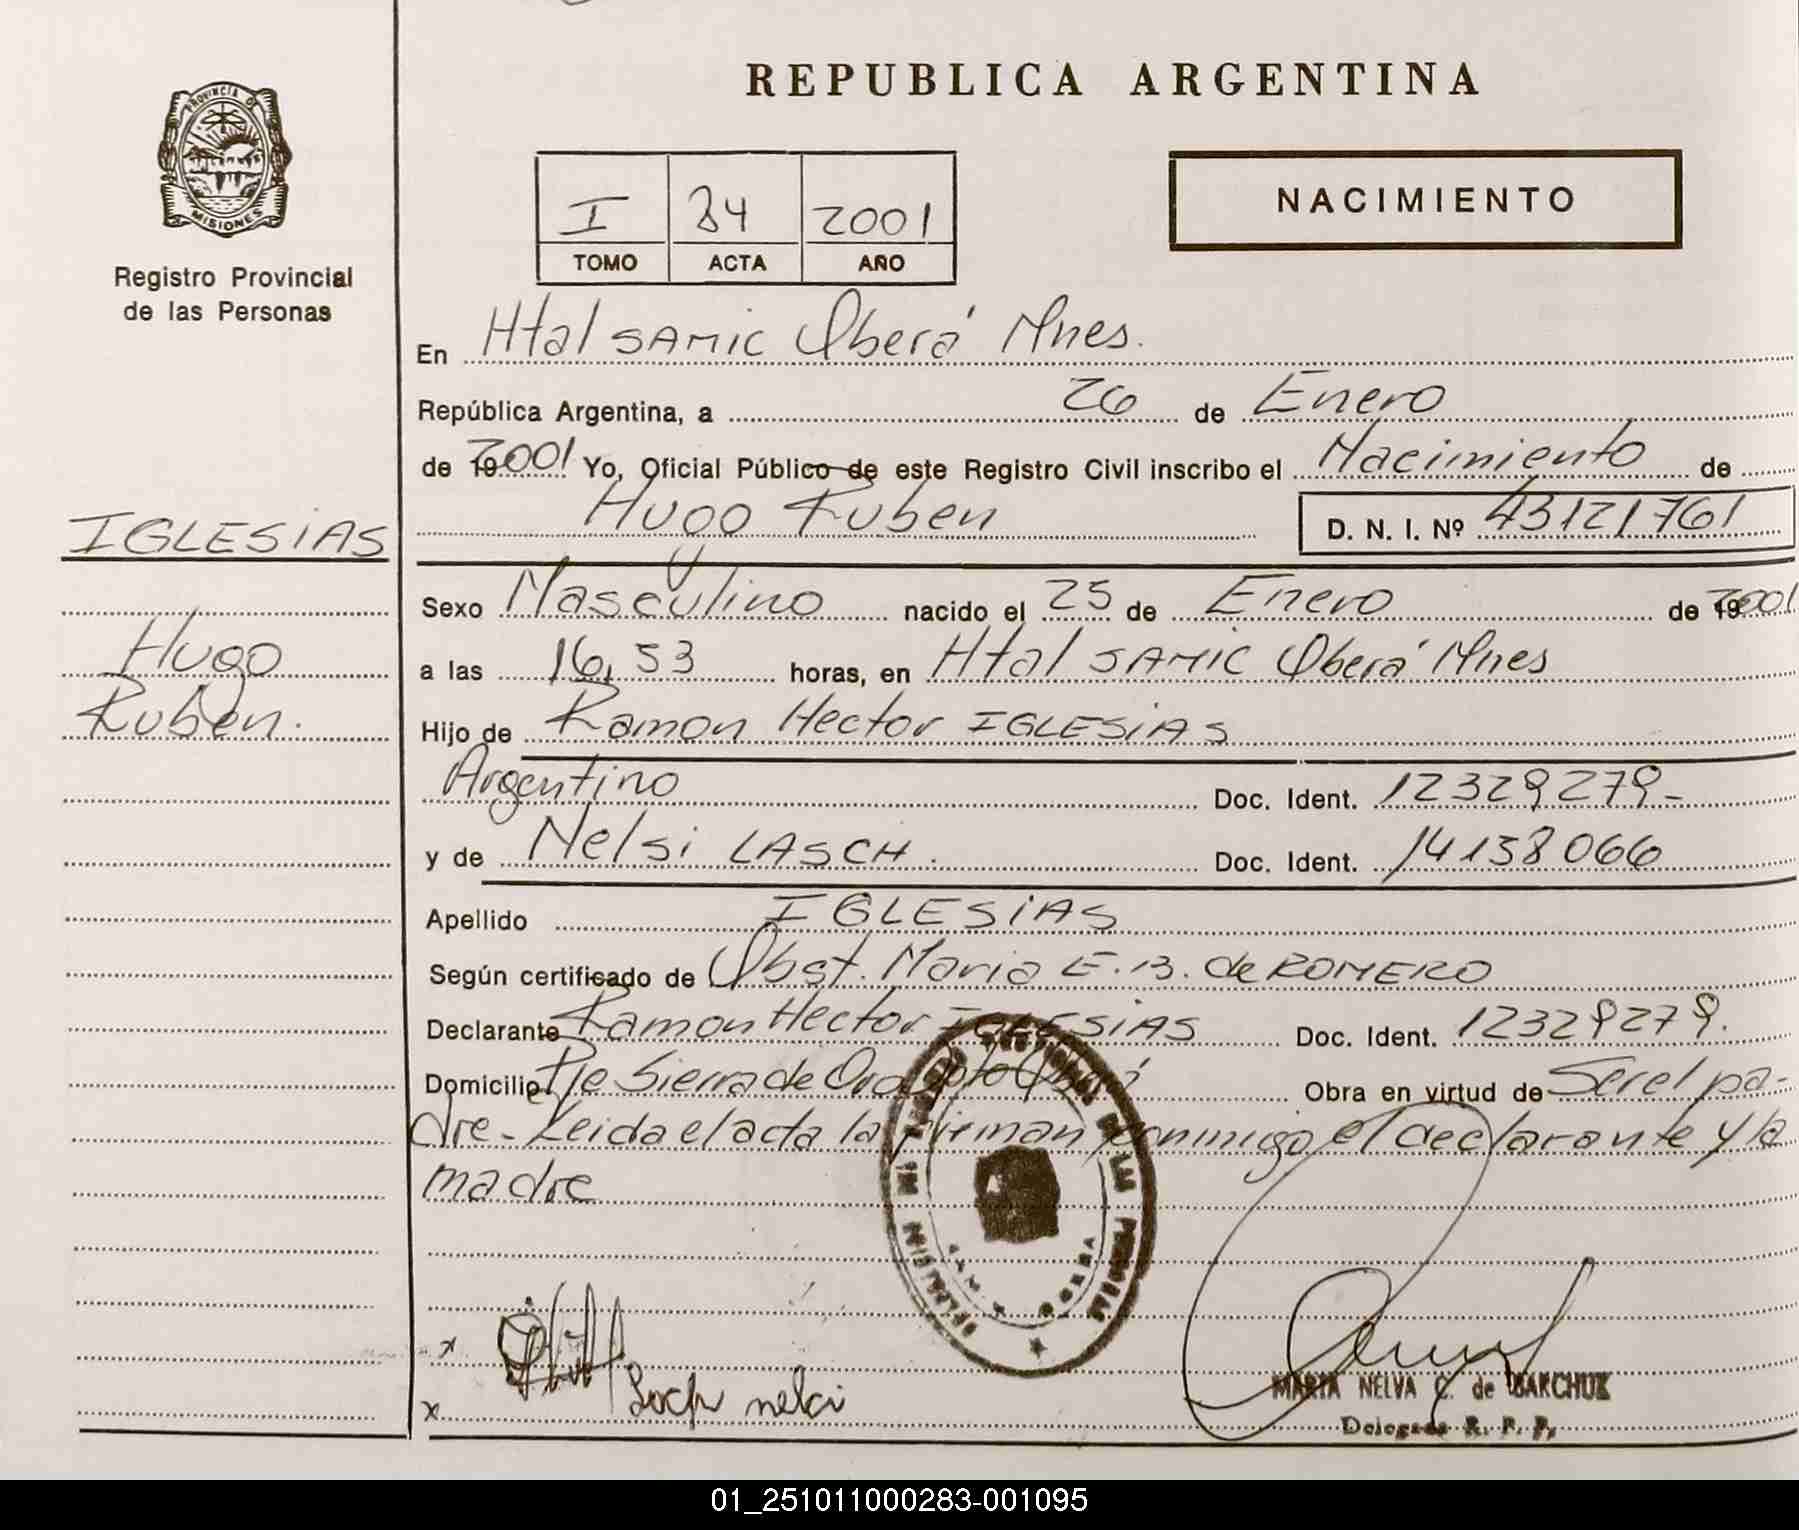 REPUBLICA ARGENTINA
PROVINCIA DE
MISIONES
Registro Provincial
de las Personas
I 84 2001
TOMO ACTA AÑO
NACIMIENTO
En Htal SAMIC Oberá Mnes.
República Argentina, a 26 de Enero
de 2001 Yo, Oficial Público de este Registro Civil inscribo el Nacimiento de
Hugo Ruben D. N. I. Nº 43121761
IGLESIAS
Hugo
Ruben.
Sexo Masculino nacido el 25 de Enero de 2001
a las 16,53 horas, en Htal SAMIC Oberá Mnes
Hijo de Ramon Hector IGLESIAS
Argentino Doc. Ident. 12329279-
y de Nelsi LASCH. Doc. Ident. 14138066
Apellido IGLESIAS
Según certificado de Obst. Maria E. B. de ROMERO
Declarante Ramon Hector IGLESIAS Doc. Ident. 12329279.
Domicilio Pje Sierra de Oro Oberá Obra en virtud de Ser el pa-
dre- Leida el acta la firman conmigo el declarante y la
madre
x
x Lasch nelci
MARTA NELVA C. de SAKCHUK
Delegada R. P. P.
01_251011000283-001095